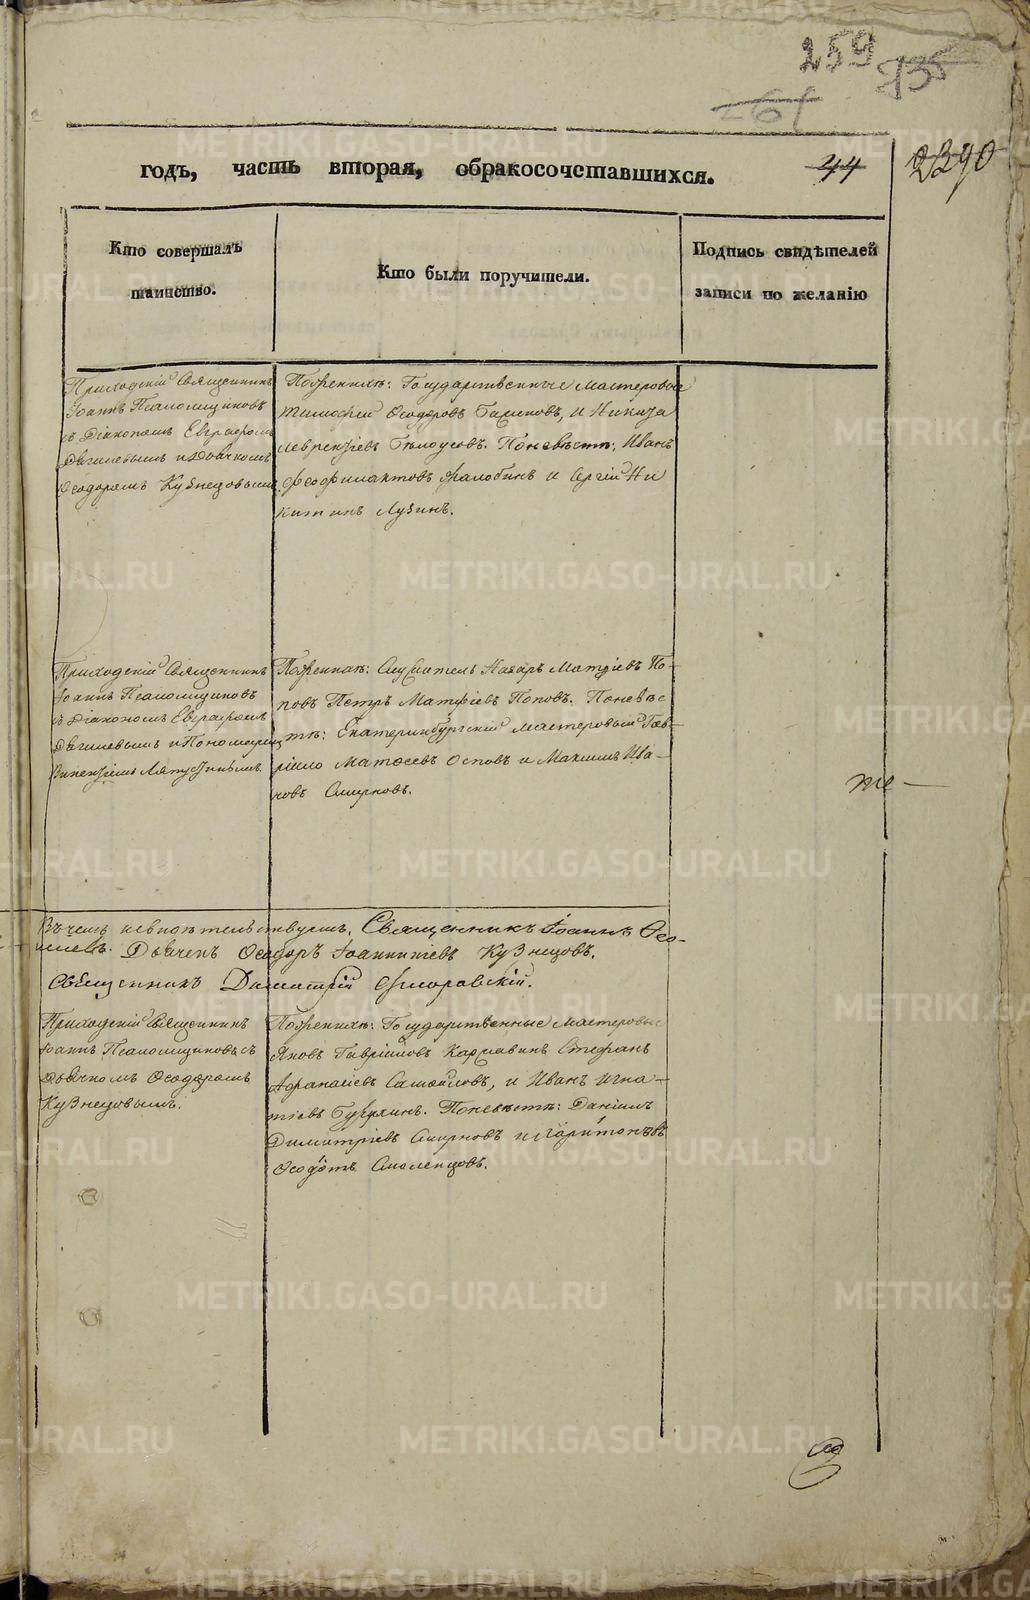 259
235
261
годъ, часть вторая, обракосочетавшихся.
44
2390
Кто совершалъ
таинство.
Кто были поручители.
Подпись свидѣтелей
записи по желанію
Приходскій Священникъ
Іоаннъ Псаломщиковъ
съ Діакономъ Евграфомъ
и Дьячкомъ
Ѳеодоромъ Кузнецовымъ
По женихѣ: Государственные мастеровые
Тимофей Ѳеодоровъ и Никита
Лаврентіевъ Бѣлоусовъ. По невѣстѣ: Иванъ
Феофилактовъ и Сергій Ни
китинъ Лузинъ.
Приходскій Священникъ
Іоаннъ Псаломщиковъ
съ Діакономъ Евграфомъ
и Пономаремъ
По женихѣ: Назаръ Матфіевъ По-
повъ Петръ Матфіевъ Поповъ. По невѣс
тѣ: Екатеринбургскій мастеровый Гав-
ріило и Максимъ Ива-
новъ Смирновъ.
Въ чемъ и свидѣтельствуемъ, Священникъ Іоаннъ
Дьячекъ Ѳеодоръ Іоанникіевъ Кузнецовъ.
Священникъ Димитрій
Приходскій Священникъ
Іоаннъ Псаломщиковъ съ
Дьячкомъ Ѳеодоромъ
Кузнецовымъ.
По женихѣ: Государственные мастеровые
Яковъ Гавріиловъ Стефанъ
Афанасіевъ Самойловъ, и Иванъ Игна-
тіевъ По невѣстѣ: Даніилъ
Димитріевъ Смирновъ и Харитоновъ
Ѳеодотъ Смоленцовъ.
METRIKI.GASO-URAL.RU